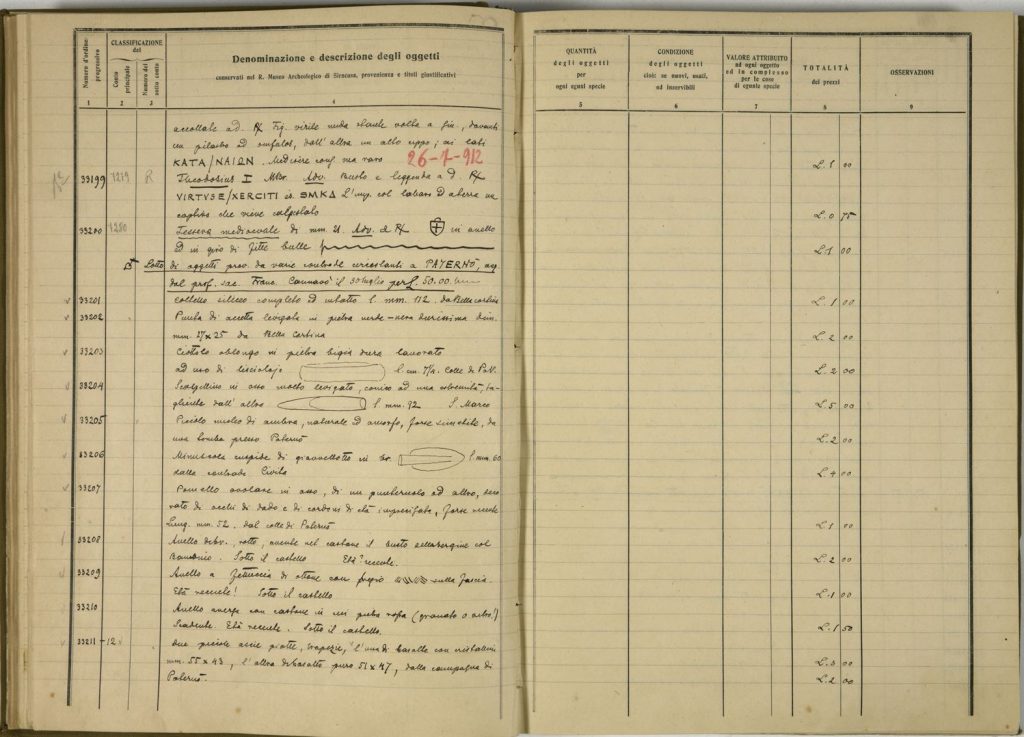 Numero d'ordine progressivo
CLASSIFICAZIONE del
Conto principale
Numero del sotto conto
Denominazione e descrizione degli oggetti
conservati nel R. Museo Archeologico di Siracusa, provenienza e titoli giustificativi
1 2 3 4
accollate a d. R/ Fig. virile nuda stante volta a sin., davanti
un pilastro ad omfalos, dall' altra un alto cippo; ai lati
KATA/NAIΩN. Mediocre cons. ma raro 26-7-912
33199 1279 R Theodosius I MBr. Adv. Busto e leggenda a d. R/
VIRTVSE/XERCITI es. SMKΔ L'imp. col labaro
che viene calpestato
33200 1280 Tessera medioevale di mm. 21. Adv. e R/ in anello
ed in giro di
Lotto di oggetti prov. da varie contrade circostanti a PATERNÒ, acq.
dal prof. sac. Franc. Cannavò il 30 luglio per £. 50.00
33201 Coltello siliceo completo ed intatto l. mm. 112. da Bella cortina
33202 Punta di accetta levigata in pietra verde-nera durissima dim.
mm. 27 x 25 da Bella Cortina
33203 Ciottolo oblungo in pietra bigia dura lavorato
ad uso di lisciatojo l. cm. 7½. Colle di Pat.
33204 Scalpellino in osso molto levigato, conico ad una estremità, ta-
gliente dall' altra l. mm. 92 S. Marco
33205 Piccolo nucleo di ambra, naturale ed amorfo, forse simetite, da
una tomba presso Paternò
33206 Minuscola cuspide di giavellotto in br. l. mm. 60
dalla contrada Civita
33207 Pomello ovolare in osso, di un punteruolo od altro, deco
rato di occhi di dado e di cordoni di età imprecisata, forse recente
Lung. mm. 52. dal colle di Paternò
33208 Anello di br., rotto, avente nel castone il busto della Vergine col
Bambino. Sotto il castello Età? recente.
33209 Anello a fettuccia di ottone con fregio sulla fascia.
Età recente! Sotto il castello
33210 Anello con castone in cui pietra rossa (granato o altro?)
Scadente. Età recente. Sotto il castello.
33211-12 Due piccole accie piatte, trapezie, l'una di basalto con cristallini
mm. 55 x 43, l'altra di basalto puro 51 x 47, dalla campagna di
Paternò.
QUANTITÀ degli oggetti per ogni eguai specie
CONDIZIONE degli oggetti cioè: se nuovi, usati, od inservibili
VALORE ATTRIBUITO ad ogni oggetto ed in complesso per le cose di eguale specie
TOTALITÀ dei prezzi
OSSERVAZIONI
5 6 7 8 9
L. 1 00
L. 0 75
L. 1 00
L. 1 00
L. 2 00
L. 2 00
L. 5 00
L. 2 00
L. 4 00
L. 1 00
L. 2 00
L. 1 00
L. 1 50
L. 3 00
L. 2 00